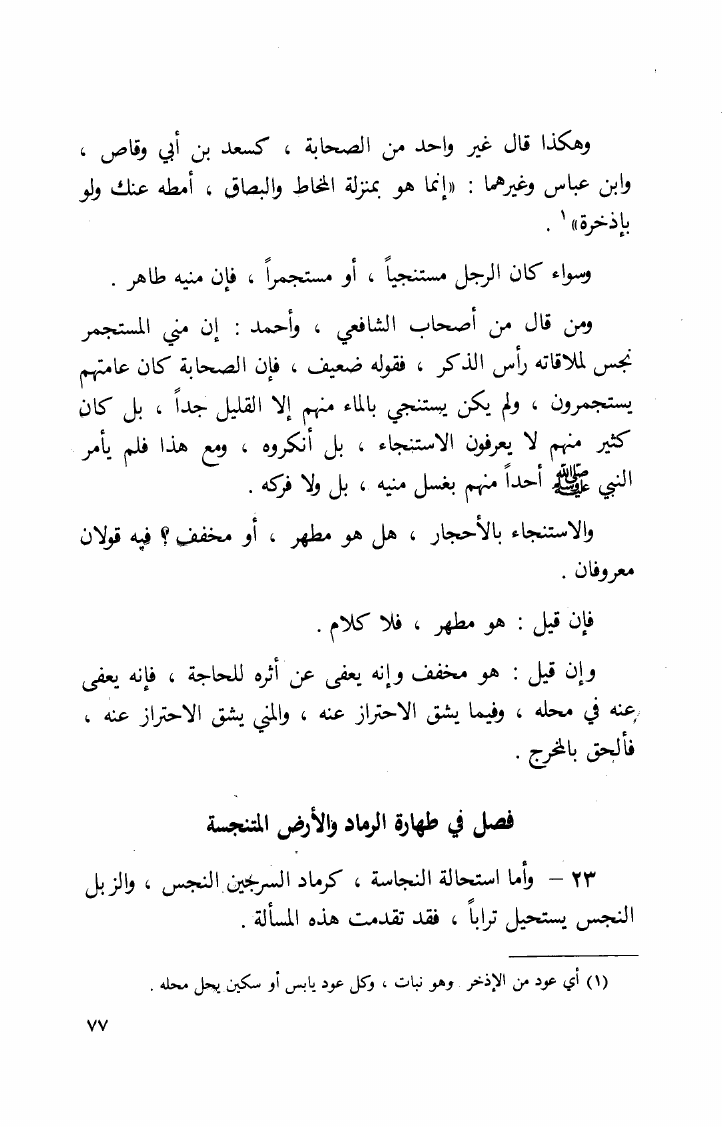 وهكذا قال غير واحد من الصحابة ، كسعد بن أبي وقاص ،
وابن عباس وغيرهما : «إنما هو بمنزلة المخاط والبصاق ، أمطه عنك ولو
بإذخرة»١ .
وسواء كان الرجل مستنجياً ، أو مستجمراً ، فإن منيه طاهر .
ومن قال من أصحاب الشافعي ، وأحمد : إن مني المستجمر
نجس لملاقاته رأس الذكر ، فقوله ضعيف ، فإن الصحابة كان عامتهم
يستجمرون ، ولم يكن يستنجي بالماء منهم إلا القليل جداً ، بل كان
كثير منهم لا يعرفون الاستنجاء ، بل أنكروه ، ومع هذا فلم يأمر
النبي ﷺ أحداً منهم بغسل منيه ، بل ولا فركه .
والاستنجاء بالأحجار ، هل هو مطهر ، أو مخفف ؟ فيه قولان
معروفان .
فإن قيل : هو مطهر ، فلا كلام .
وإن قيل : هو مخفف وإنه يعفى عن أثره للحاجة ، فإنه يعفى
عنه في محله ، وفيما يشق الاحتراز عنه ، والمني يشق الاحتراز عنه ،
فألحق بالمخرج .
فصل في طهارة الرماد والأرض المتنجسة
٢٣ – وأما استحالة النجاسة ، كرماد السرجين النجس ، والزبل
النجس يستحيل تراباً ، فقد تقدمت هذه المسألة .
(١) أي عود من الإذخر وهو نبات ، وكل عود يابس أو سكين يحل محله .
٧٧